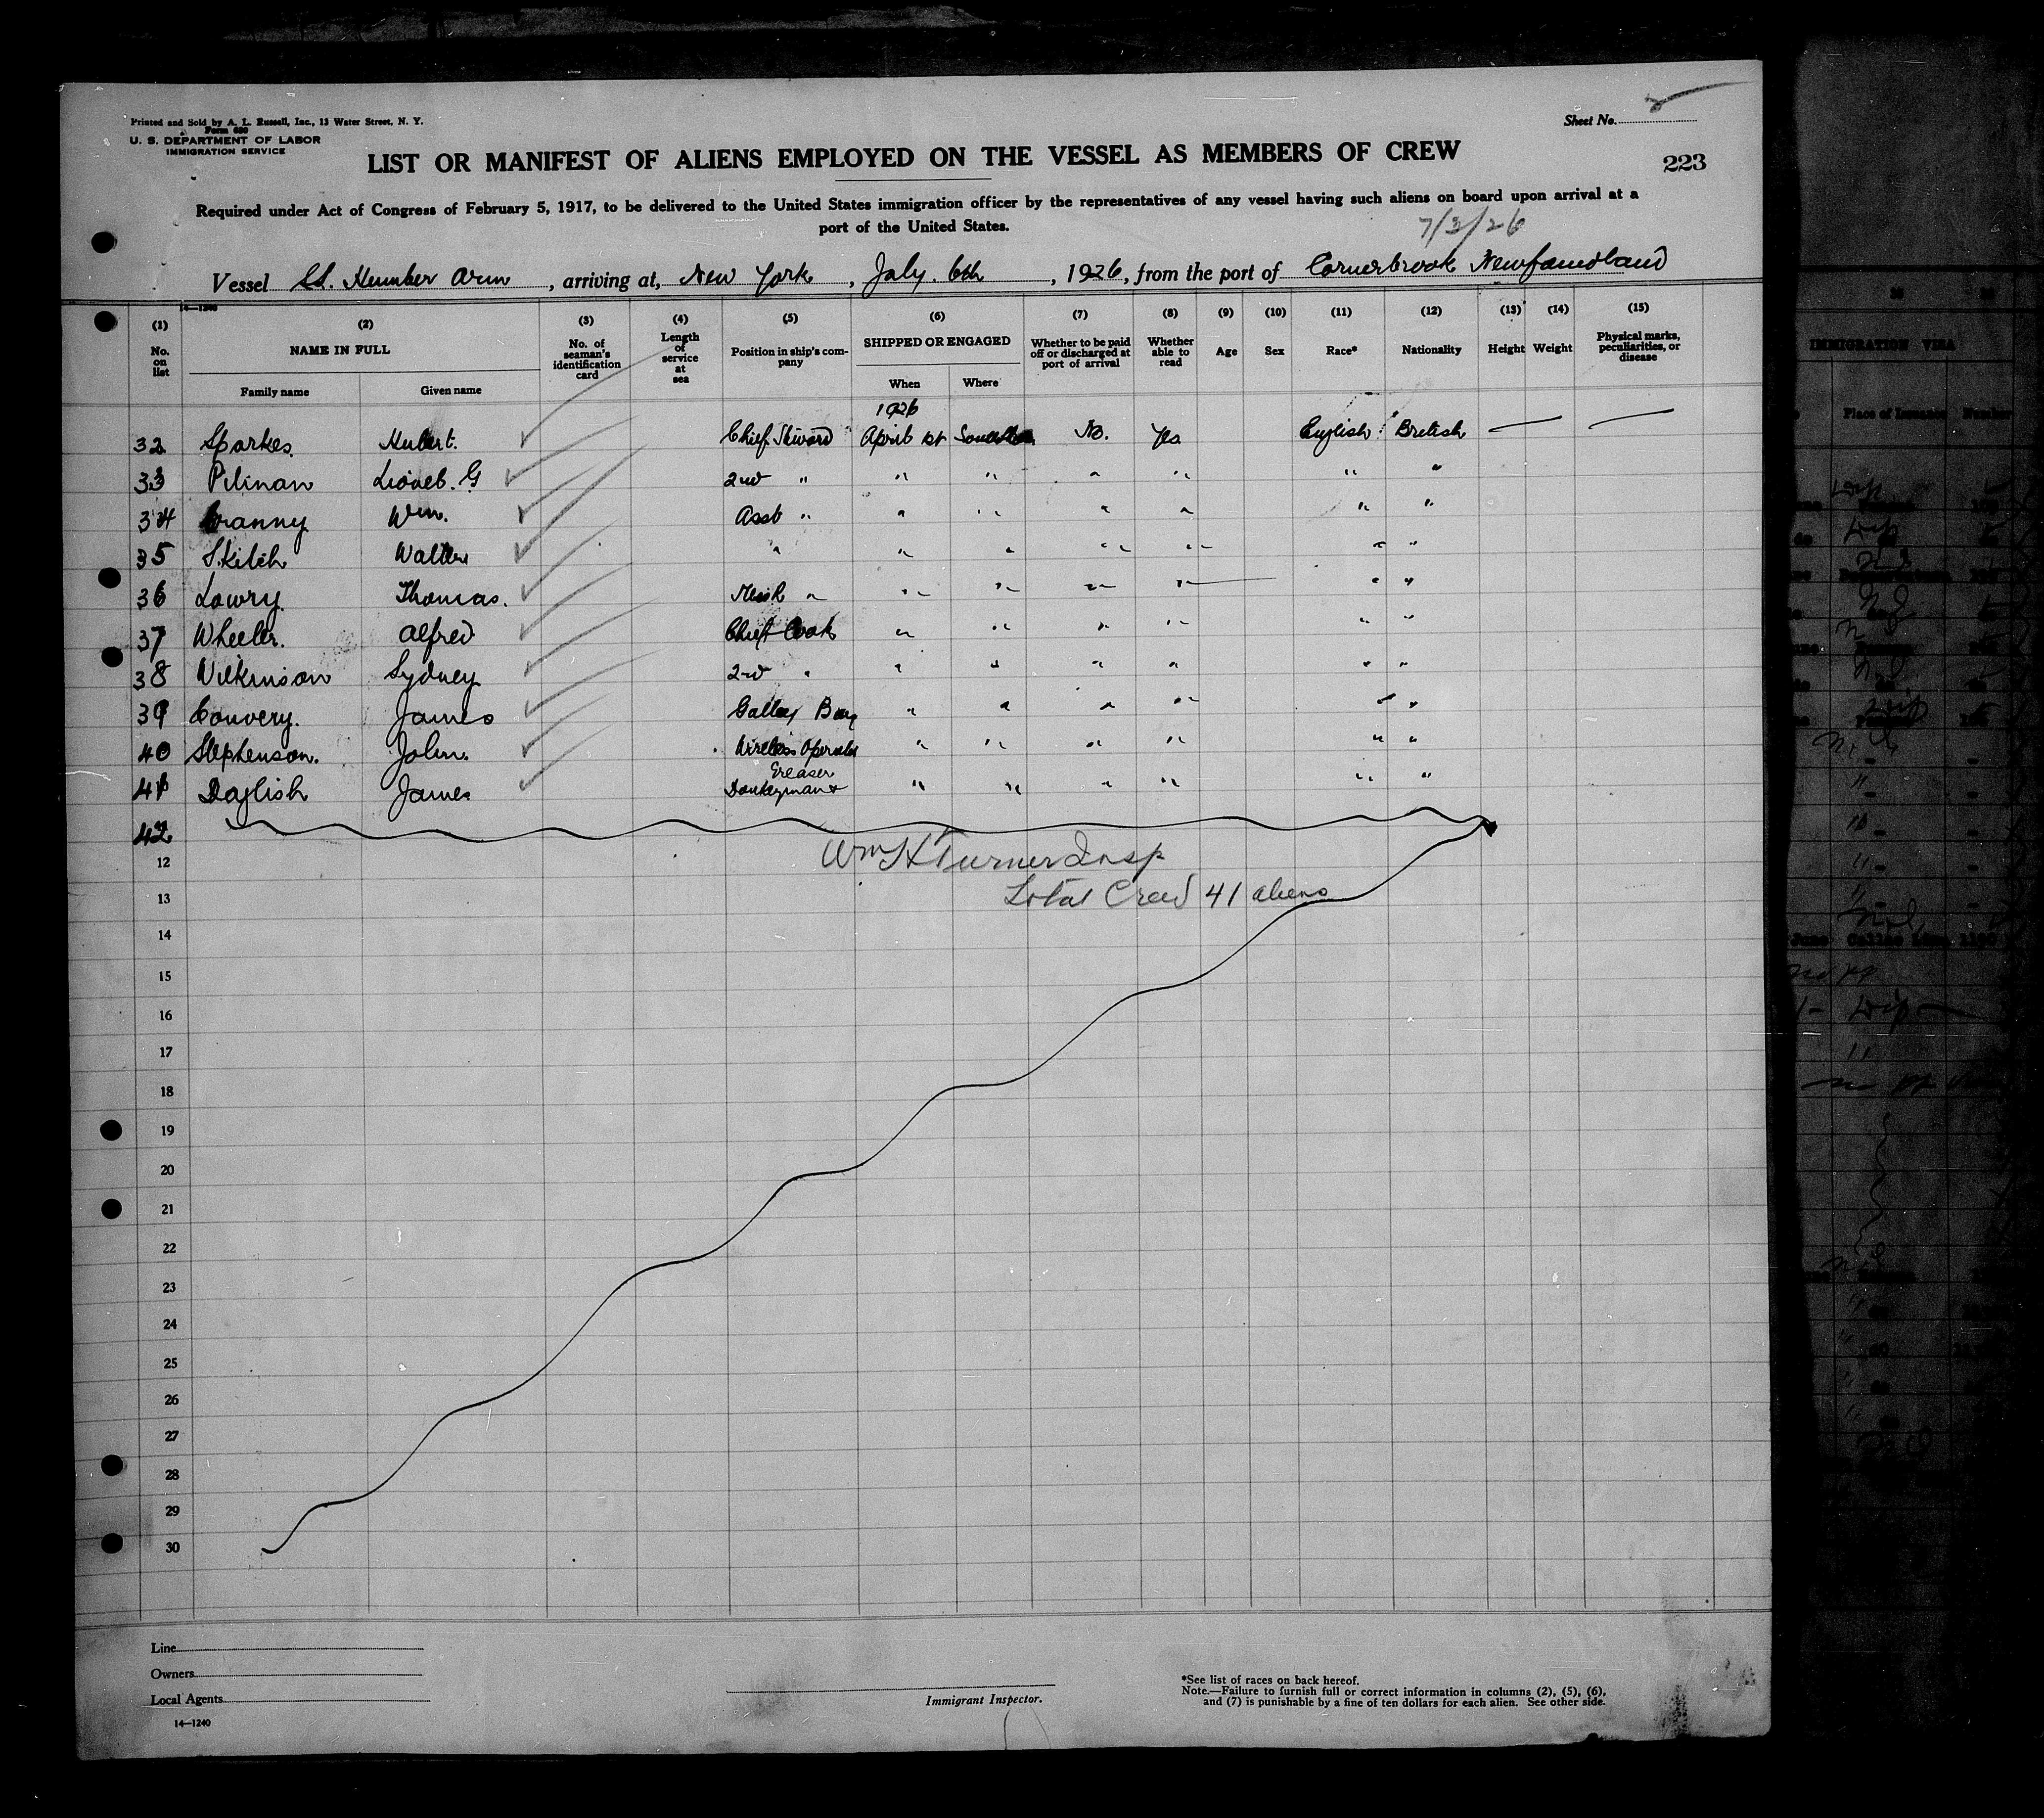 Printed and Sold by A. L. Russell, Inc., 13 Water Street, N. Y.
Form 680
U. S. DEPARTMENT OF LABOR
IMMIGRATION SERVICE
Sheet No.
LIST OR MANIFEST OF ALIENS EMPLOYED ON THE VESSEL AS MEMBERS OF CREW
223
Required under Act of Congress of February 5, 1917, to be delivered to the United States immigration officer by the representatives of any vessel having such aliens on board upon arrival at a
port of the United States.
7/3/26
Vessel SS. Humber Arm, arriving at, New York, July. 6th, 1926, from the port of Cornerbrook Newfoundland
14—1240
(1) (2) (3) (4) (5) (6) (7) (8) (9) (10) (11) (12) (13) (14) (15)
No. on list NAME IN FULL No. of seaman's identification card Length of service at sea Position in ship's company SHIPPED OR ENGAGED Whether to be paid off or discharged at port of arrival Whether able to read Age Sex Race* Nationality Height Weight Physical marks, peculiarities, or disease
Family name Given name When Where
1926
32 Sparkes. Hubert. Chief Steward April 1st No. Yes English British
33 Lionel. G 2nd " " " " " " "
34 Wm. Asst " " " " " " "
35 Skitch Walter " " " " " " "
36 Lowry. Thomas. Mess R " " " " " " "
37 Wheeler. Alfred Chief Cook " " " " " "
38 Wilkinson Sydney 2nd " " " " " " "
39 Convery. James Galley Boy " " " " " "
40 Stephenson. John. Wireless Operator " " " " " "
Greaser
41 Daglish James Donkeyman & " " " " " "
42
Wm H Turner Insp
12
Total Crew 41 aliens
13
14
15
16
17
18
19
20
21
22
23
24
25
26
27
28
29
30
Line
Owners
Local Agents
14—1240
Immigrant Inspector.
*See list of races on back hereof.
Note.—Failure to furnish full or correct information in columns (2), (5), (6),
and (7) is punishable by a fine of ten dollars for each alien. See other side.
IMMIGRATION VISA
Place of Issuance Number